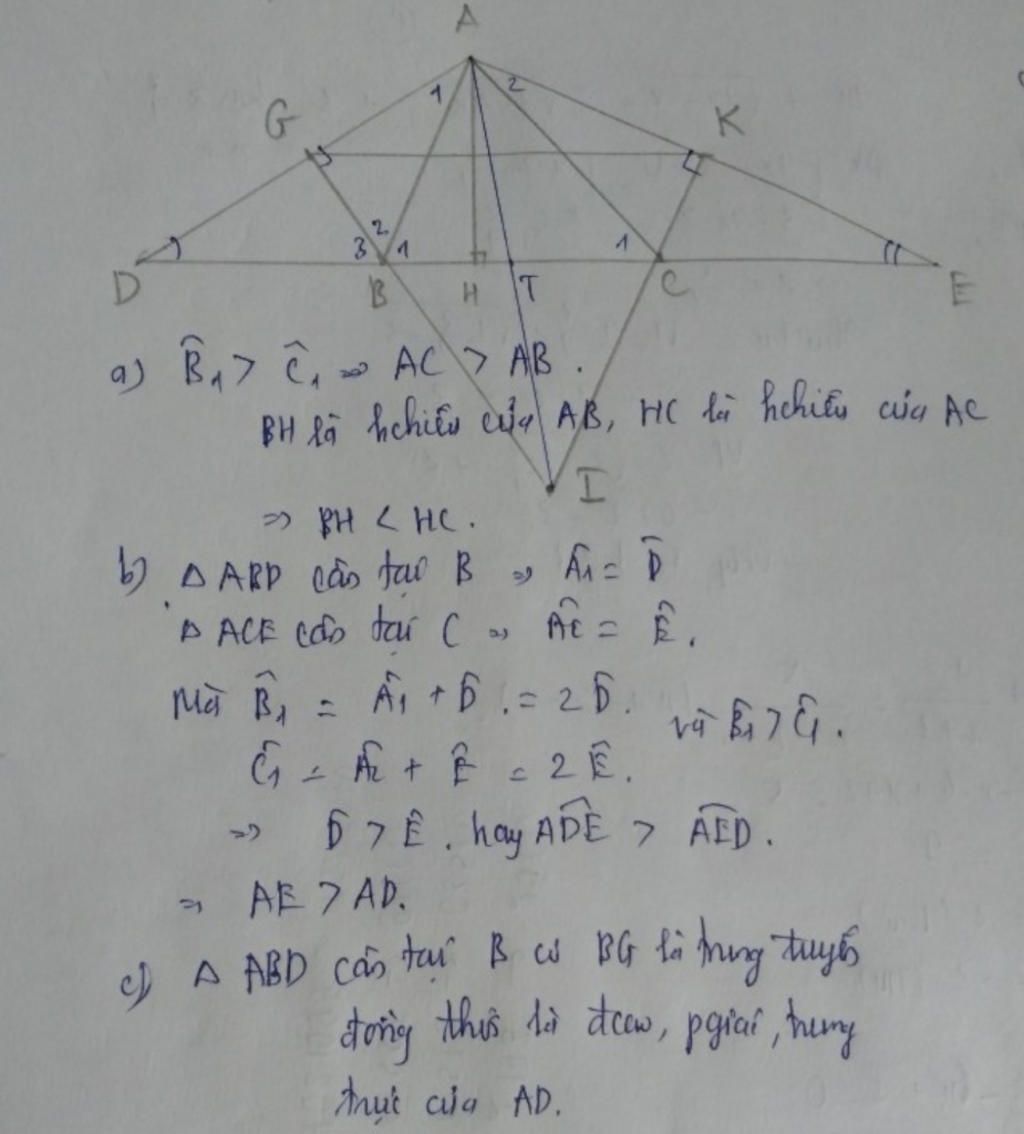 A
1 2
G K
3 2 1 1
D B H T C E
a) B̂₁ > Ĉ₁ => AC > AB.
BH là hchiếu của AB, HC là hchiếu của AC
I
=> BH < HC.
b) △ ABD cân tại B => Â₁ = D̂
△ ACE cân tại C => Â₂ = Ê.
Mà B̂₁ = Â₁ + D̂ . = 2 D̂. và B̂₁ > Ĉ₁.
Ĉ₁ = Â₂ + Ê = 2 Ê.
=> D̂ > Ê. hay ADE > AED.
=> AE > AD.
c) △ ABD cân tại B có BG là trung tuyến
đồng thời là đcao, pgiác, trung
trực của AD.